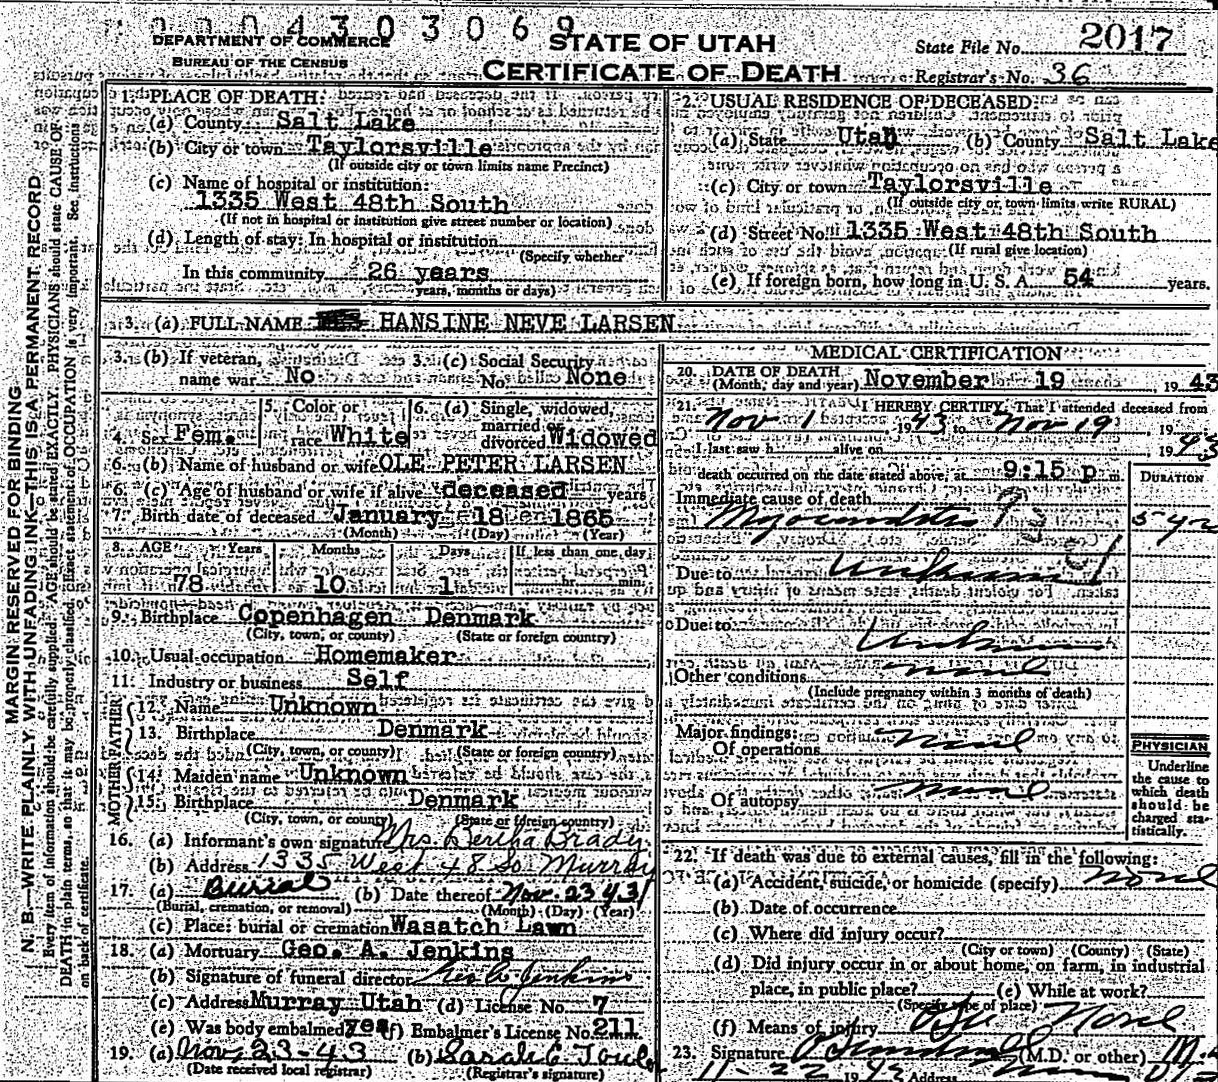 0004303069
DEPARTMENT OF COMMERCE
BUREAU OF THE CENSUS
STATE OF UTAH
CERTIFICATE OF DEATH
State File No. 2017
Registrar's No. 36
MARGIN RESERVED FOR BINDING
N. B.—WRITE PLAINLY WITH UNFADING INK—THIS IS A PERMANENT RECORD
Every item of information should be carefully supplied. AGE should be stated EXACTLY. PHYSICIANS should state CAUSE OF
DEATH in plain terms, so that it may be properly classified. Exact statement of OCCUPATION is very important. See instructions
on back of certificate.
1. PLACE OF DEATH:
(a) County Salt Lake
(b) City or town Taylorsville
(If outside city or town limits name Precinct)
(c) Name of hospital or institution:
1335 West 48th South
(If not in hospital or institution give street number or location)
(d) Length of stay: In hospital or institution
(Specify whether
In this community 26 years
years, months or days)
2. USUAL RESIDENCE OF DECEASED:
(a) State Utah (b) County Salt Lake
(c) City or town Taylorsville
(If outside city or town limits write RURAL)
(d) Street No. 1335 West 48th South
(If rural give location)
(e) If foreign born, how long in U. S. A. 54 years.
3. (a) FULL NAME HANSINE NEVE LARSEN
3. (b) If veteran, name war No
3. (c) Social Security No. None
4. Sex Fem.
5. Color or race White
6. (a) Single, widowed, married or divorced Widowed
6. (b) Name of husband or wife OLE PETER LARSEN
6. (c) Age of husband or wife if alive deceased years
7. Birth date of deceased January 18 1865
(Month) (Day) (Year)
8. AGE Years Months Days If less than one day
78 10 1 hr. min.
9. Birthplace Copenhagen Denmark
(City, town, or county) (State or foreign country)
10. Usual occupation Homemaker
11. Industry or business Self
FATHER
12. Name Unknown
13. Birthplace Denmark
(City, town, or county) (State or foreign country)
MOTHER
14. Maiden name Unknown
15. Birthplace Denmark
(City, town, or county) (State or foreign country)
16. (a) Informant's own signature Mrs. Bertha Brady
(b) Address 1335 West 48 So. Murray
17. (a) Burial (b) Date thereof Nov. 23 43
(Burial, cremation, or removal) (Month) (Day) (Year)
(c) Place: burial or cremation Wasatch Lawn
18. (a) Mortuary Geo. A. Jenkins
(b) Signature of funeral director Geo A Jenkins
(c) Address Murray Utah (d) License No. 7
(e) Was body embalmed yes (f) Embalmer's License No. 211
19. (a) Nov. 23-43 (b) Sarah C.
(Date received local registrar) (Registrar's signature)
MEDICAL CERTIFICATION
20. DATE OF DEATH
(Month, day and year) November 19 1943
21. I HEREBY CERTIFY, That I attended deceased from
Nov 1, 1943 to Nov 19, 1943
I last saw h alive on , 19
death occurred on the date stated above, at 9:15 p m.
DURATION
Immediate cause of death
5 yrs
Due to Unknown
Due to Unknown
Other conditions none
(Include pregnancy within 3 months of death)
Major findings:
Of operations none
Of autopsy none
PHYSICIAN
Underline
the cause to
which death
should be
charged sta-
tistically.
22. If death was due to external causes, fill in the following:
(a) Accident, suicide, or homicide (specify) none
(b) Date of occurrence
(c) Where did injury occur?
(City or town) (County) (State)
(d) Did injury occur in or about home, on farm, in industrial
place, in public place? (e) While at work?
(Specify type of place)
(f) Means of injury None
23. Signature (M.D. or other)
11-22 1942 Address